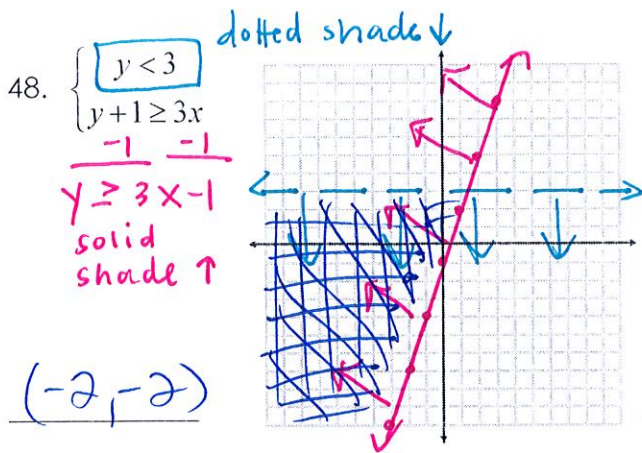 dotted shade ↓
48. { y < 3
y + 1 ≥ 3x
-1 -1
y ≥ 3x - 1
solid
shade ↑
(-2, -2)